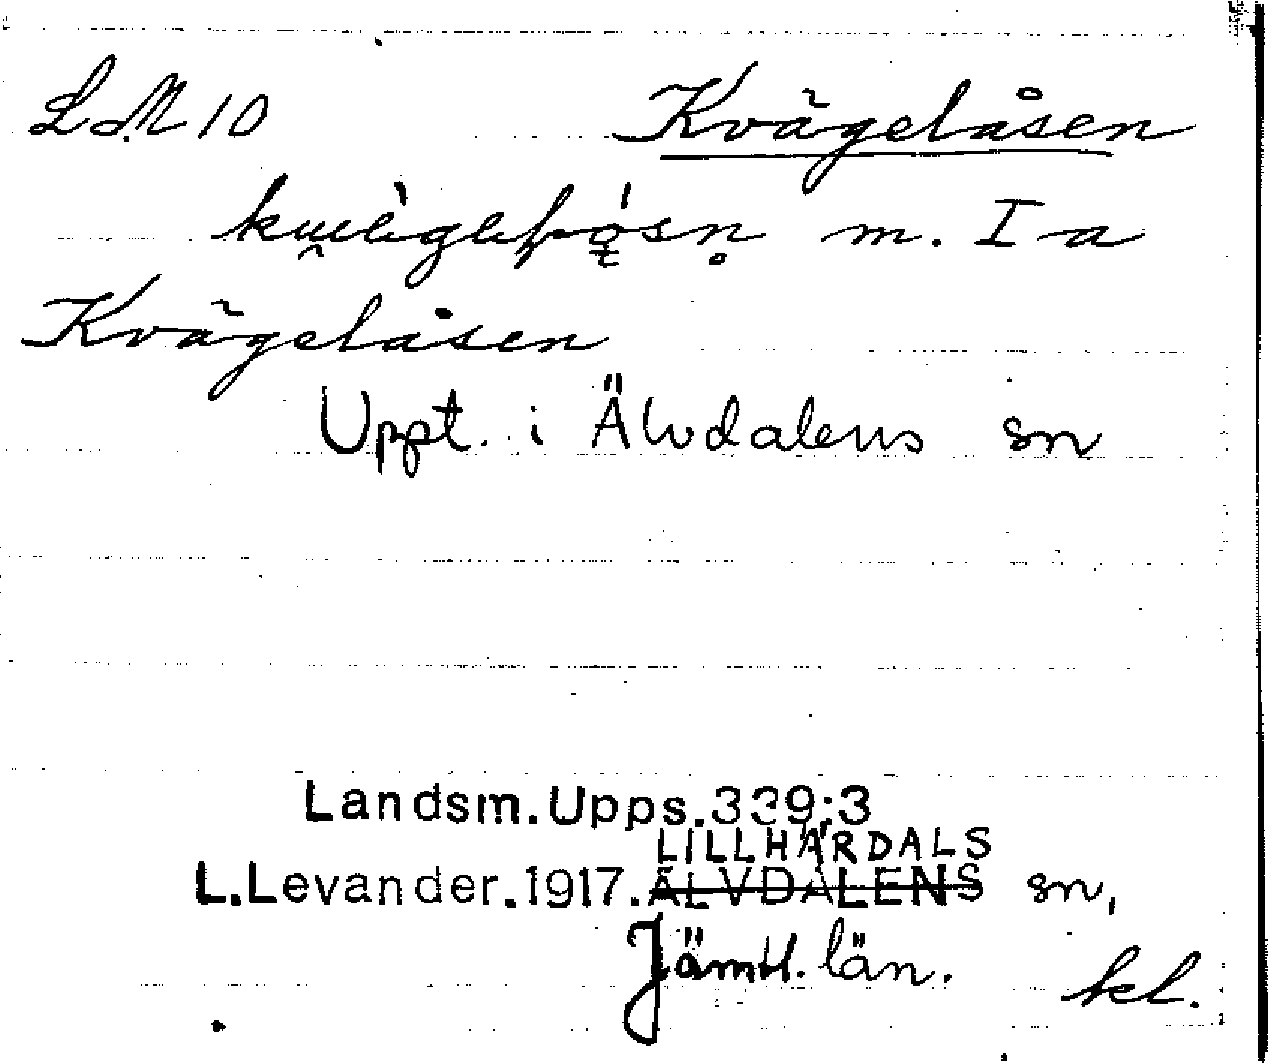 LM 10 Kvägelåsen
m. I a
Kvägelåsen
Uppt. i Älvdalens sn
Landsm.Upps.339:3
LILLHÄRDALS
L.Levander.1917.ÄLVDALENS sn,
Jämtl. län.
kl.